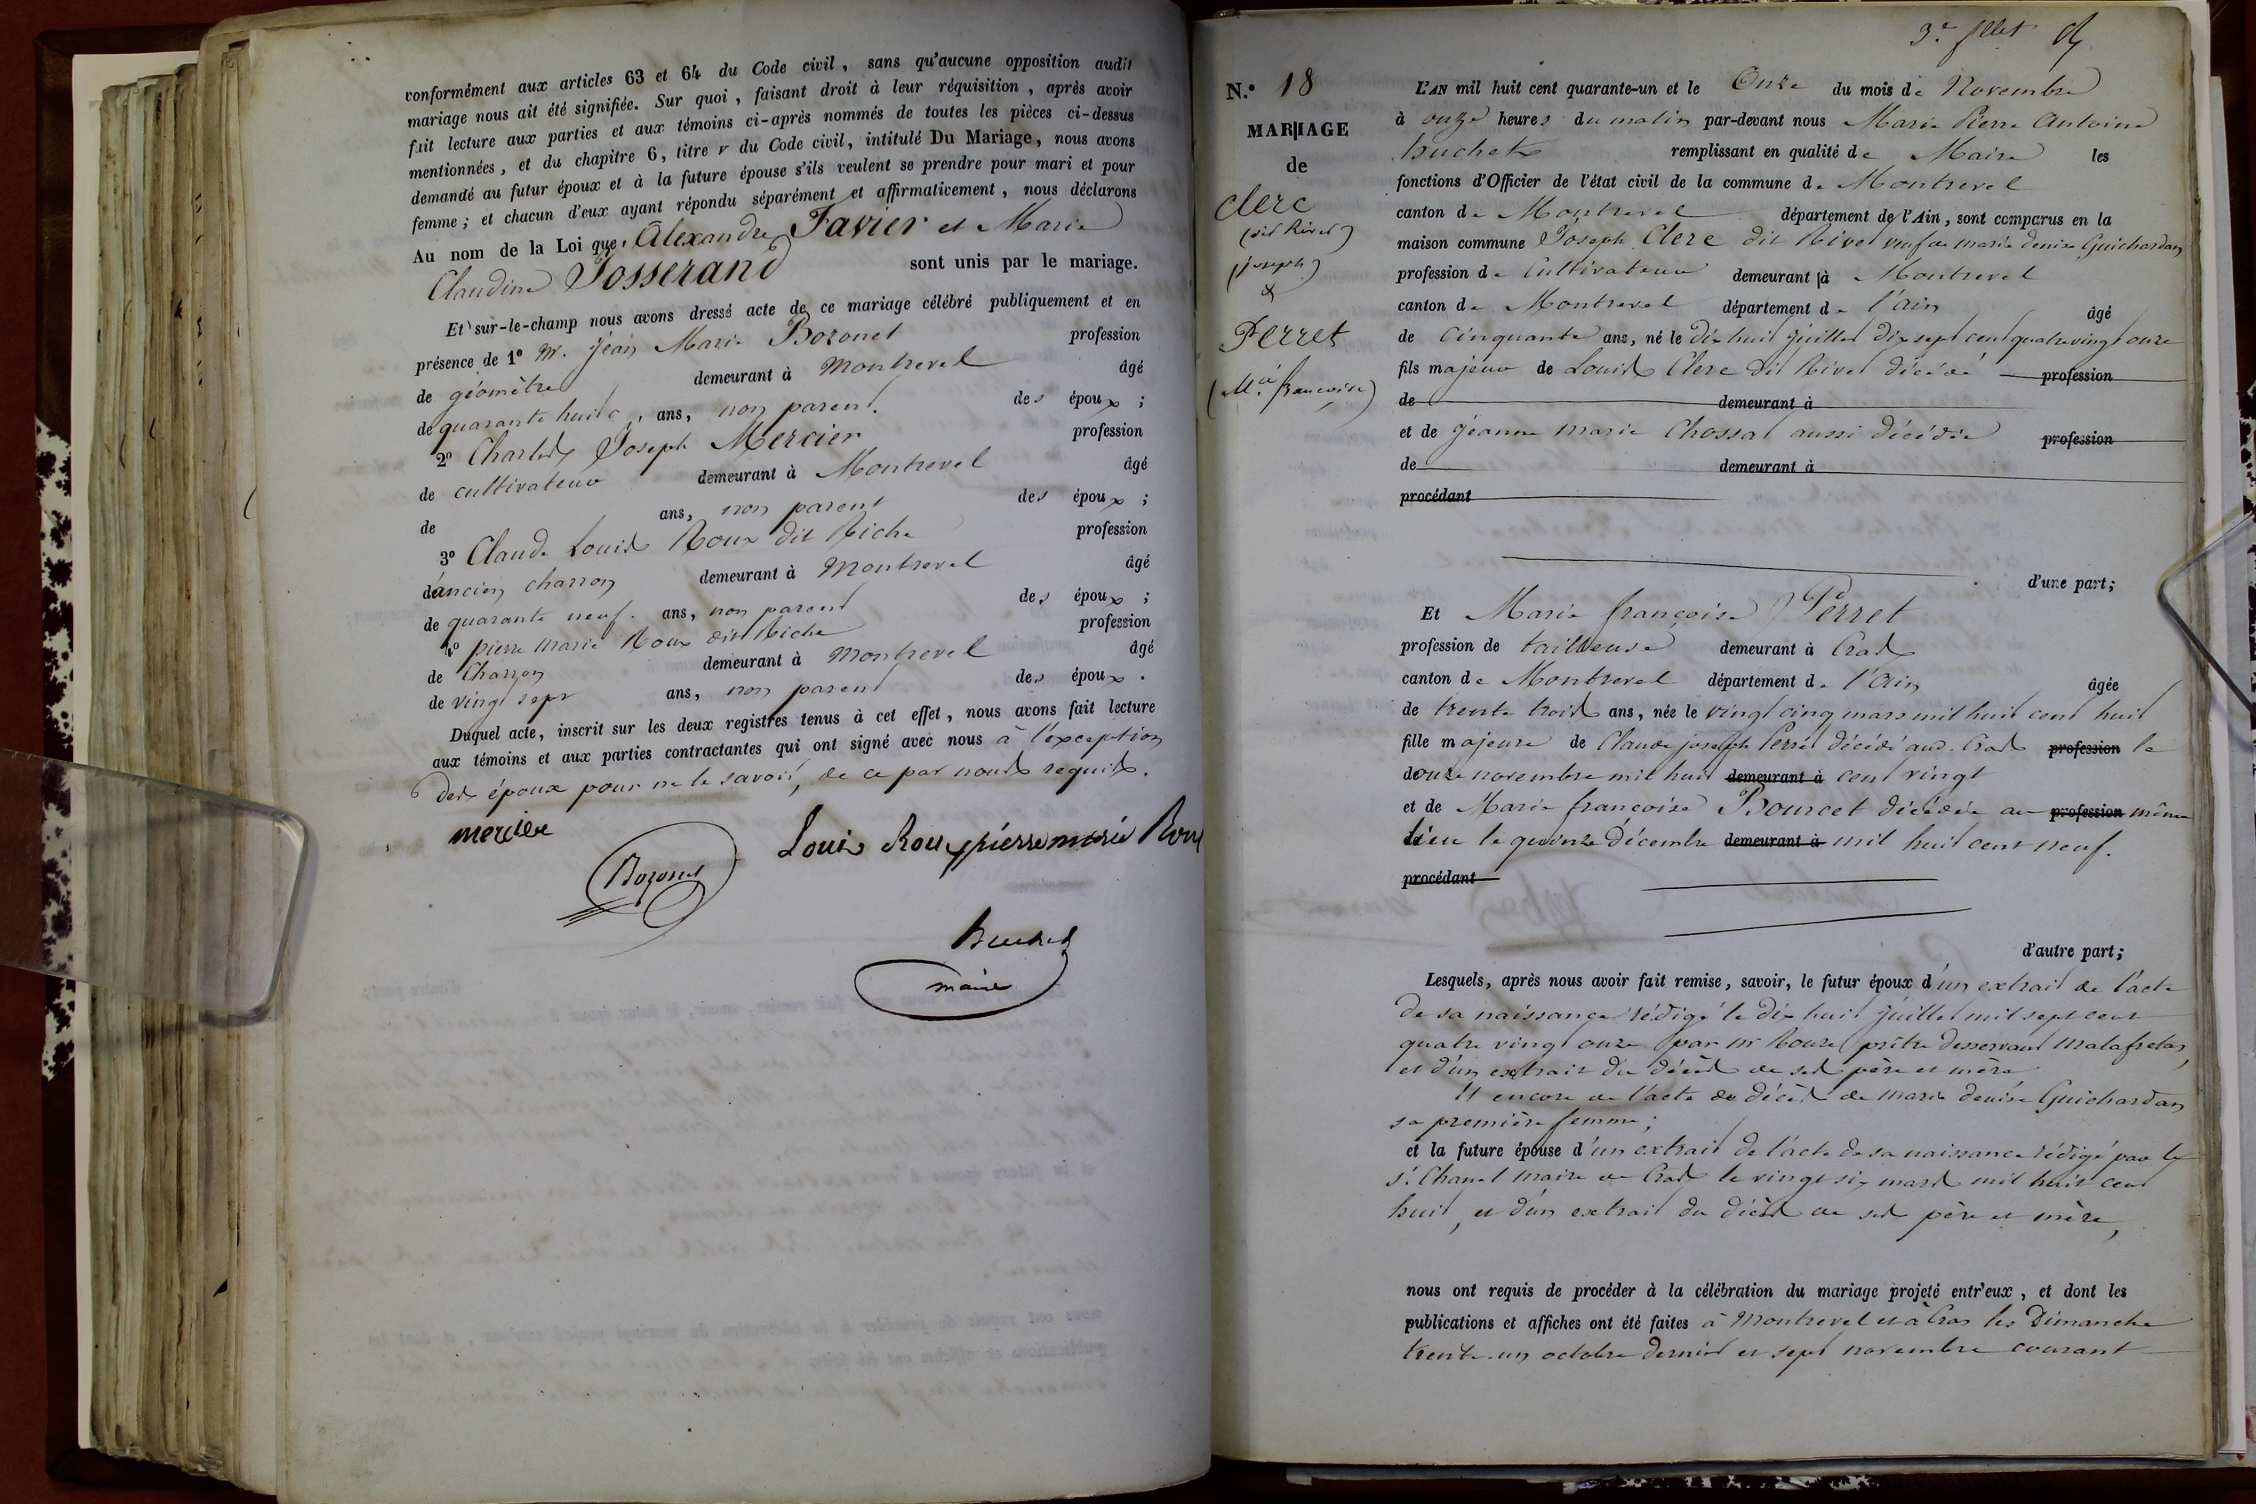 conformément aux articles 63 et 64 du Code civil, sans qu'aucune opposition audit
mariage nous ait été signifiée. Sur quoi, faisant droit à leur réquisition, après avoir
fait lecture aux parties et aux témoins ci-après nommés de toutes les pièces ci-dessus
mentionnées, et du chapitre 6, titre v du Code civil, intitulé Du Mariage, nous avons
demandé au futur époux et à la future épouse s'ils veulent se prendre pour mari et pour
femme; et chacun d'eux ayant répondu séparément et affirmativement, nous déclarons
Au nom de la Loi que Alexandre Favier et Marie
Claudine Josserand sont unis par le mariage.
Et sur-le-champ nous avons dressé acte de ce mariage célébré publiquement et en
présence de 1° Mr. jean Marie Bozonet profession
de géomètre demeurant à Montrevel âgé
de quarante huit ans, non parent des époux;
2° Charles Joseph Mercier profession
de cultivateur demeurant à Montrevel âgé
de ans, non parent des époux;
3° Claude Louis Roux dit Riche profession
d'ancien charron demeurant à Montrevel âgé
de quarante neuf. ans, non parent des époux;
4° pierre Marie Roux dit Riche profession
de Charron demeurant à Montrevel âgé
de vingt sept ans, non parent des époux.
Duquel acte, inscrit sur les deux registres tenus à cet effet, nous avons fait lecture
aux témoins et aux parties contractantes qui ont signé avec nous à l'exception
des époux pour ne le savoir, de ce par nous requis.
mercier
Louis Roux pierre marie Roux
Bozonet
huchet
maire
3e fllet
N.° 18
MARIAGE
de
Clerc
(dit Rivet)
(joseph)
&
Perret
(Mie françoise)
L'AN mil huit cent quarante-un et le Onze du mois de Novembre
à onze heures du matin par-devant nous Marie Pierre Antoine
huchet remplissant en qualité de Maire les
fonctions d'Officier de l'état civil de la commune de Montrevel
canton de Montrevel département de l'Ain, sont comparus en la
maison commune Joseph Clerc dit Rivet veuf de marie denise Guichardan
profession de Cultivateur demeurant à Montrevel
canton de Montrevel département de l'ain âgé
de cinquante ans, né le dix huit juillet dix sept cent quatre vingt onze
fils majeur de Louis Clerc dit Rivet décédé profession
de demeurant à
et de jeanne marie Chossat aussi décédée profession
de demeurant à
procédant
d'une part;
Et Marie françoise Perret
profession de tailleuse demeurant à Cras
canton de Montrevel département de l'Ain âgée
de trente trois ans, née le vingt cinq mars mil huit cent huit
fille majeure de Claude joseph Perret décédé aud. Cras profession le
douze novembre mil huit demeurant à cent vingt
et de Marie françoise Bourcet décédée au profession même
lieu le quinze décembre demeurant à mil huit cent neuf.
procédant
d'autre part;
Lesquels, après nous avoir fait remise, savoir, le futur époux d'un extrait de l'acte
de sa naissance rédigé le dix huit juillet mil sept cent
quatre vingt onze par Mr Rouze prêtre desservant Malafretaz,
et d'un extrait du décès de ses père et mère
Et encore de l'acte de décès de marie denise Guichardan
sa première femme;
et la future épouse d'un extrait de l'acte de sa naissance rédigé par le
sr. Chapel maire de Cras le vingt six mars mil huit cent
huit, et d'un extrait du décès de ses père et mère,
nous ont requis de procéder à la célébration du mariage projeté entr'eux, et dont les
publications et affiches ont été faites à Montrevel et à Cras les Dimanche
trente un octobre dernier et sept novembre courant